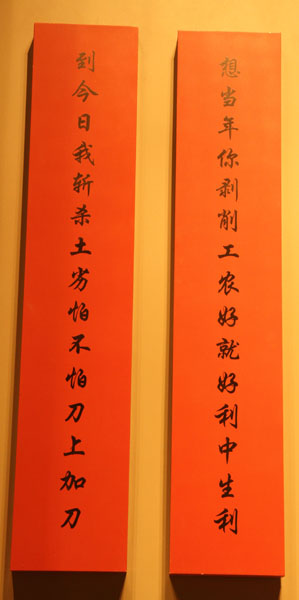 想当年你剥削工农好就好利中生利
到今日我斩杀土劣怕不怕刀上加刀